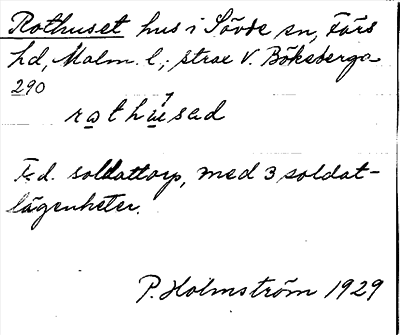 Rothuset hus i Sövde sn, Färs
hd, Malm. l.; strax V. Böksberga
290
rothúsad
F.d. soldattorp, med 3 soldat-
lägenheter.
P. Holmström 1929